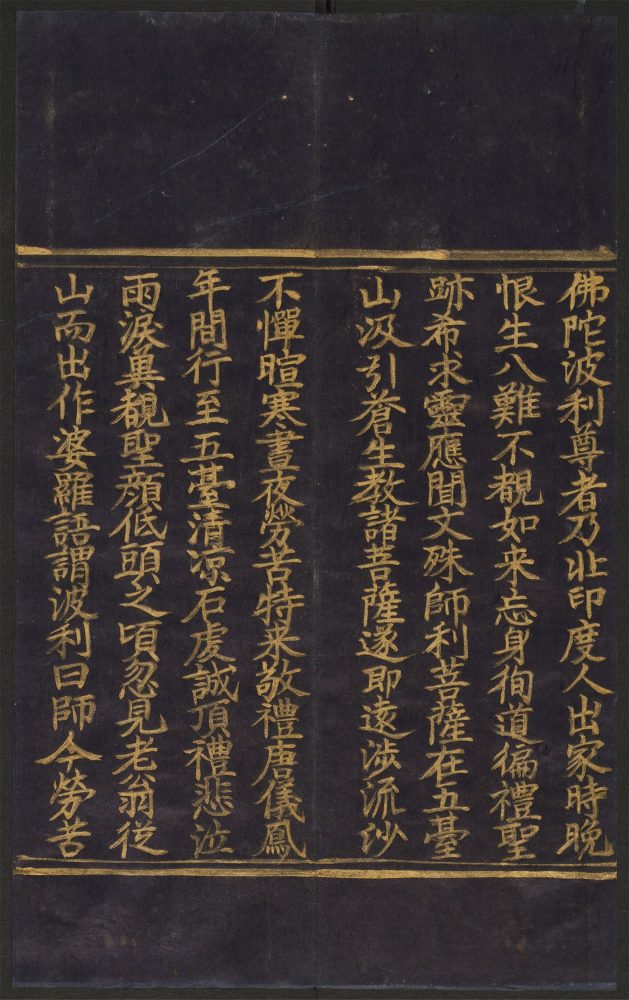 佛陀波利尊者乃北印度人出家時晚
恨生八難不覩如来忘身徇道徧禮聖
跡希求靈應聞文殊師利菩薩在五臺
山汲引蒼生教諸菩薩遂即遠涉流沙
不憚暄寒晝夜勞苦特来敬禮唐儀鳳
年間行至五臺清凉石處誠頂禮悲泣
雨淚兾覩聖顔低頭之頃忽見老翁從
山而出作婆羅語謂波利曰師今勞苦